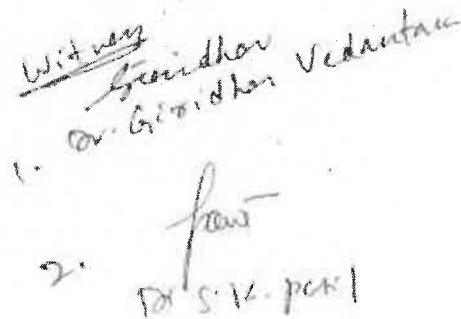 Witness
Giridhar
1. Dr. Giridhar Vedantam
2.
Dr S.K. Patil